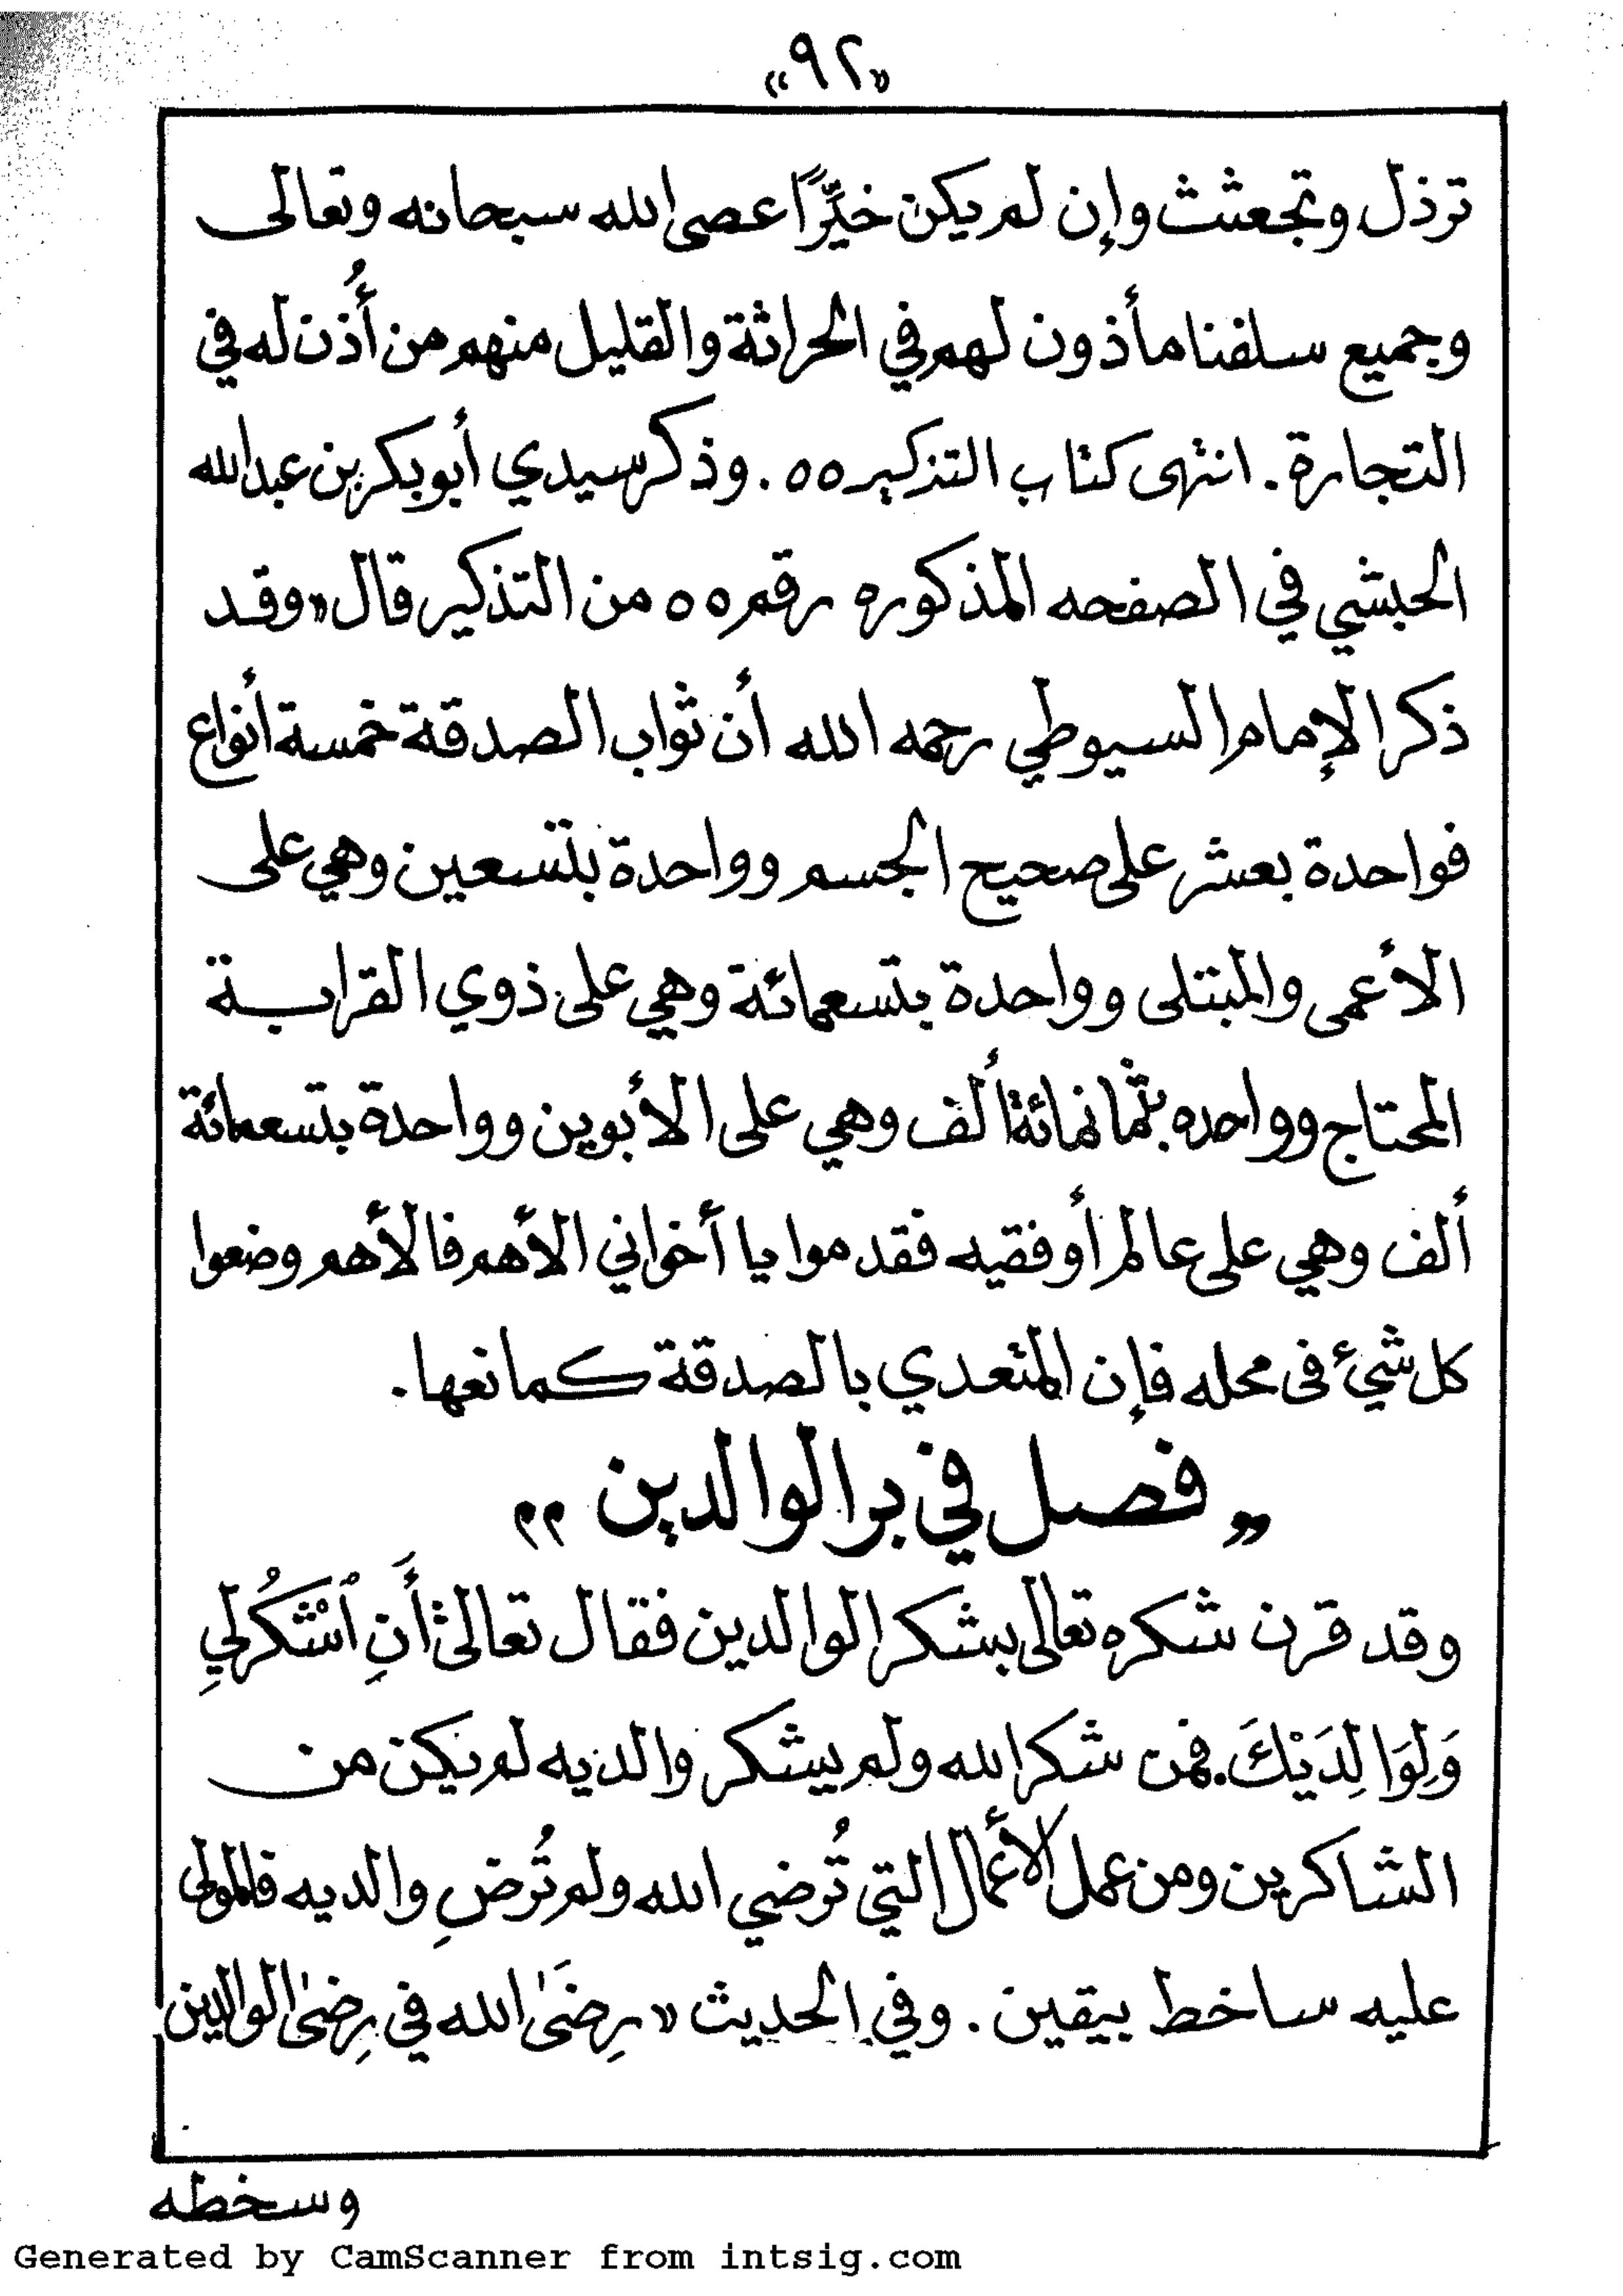 «٩٢»
ترذل وتجعثث وإن لم يكن خيِّرًا عصى الله سبحانه وتعالى
وجميع سلفنا مأذون لهم في الحراثة والقليل منهم من أُذن له في
التجارة. انتهى كتاب التذكير ٥٥. وذكر سيدي أبوبكر بن عبدالله
الحبشي في الصفحه المذكوره رقم ٥٥ من التذكير قال «وقد
ذكر الإمام السيوطي رحمه الله أن ثواب الصدقة خمسة أنواع
فواحدة بعشر على صحيح الجسم وواحدة بتسعين وهي على
الأعمى والمبتلى وواحدة بتسعمائة وهي على ذوي القرابة
المحتاج وواحده بثمانمائة ألف وهي على الأبوين وواحدة بتسعمائة
ألف وهي على عالم أو فقيه فقدموا يا أخواني الأهم فالأهم وضعوا
كل شيئ فى محله فإن المتعدي بالصدقة كمانعها.
„ فصل في بر الوالدين ”
وقد قرن شكره تعالى بشكر الوالدين فقال تعالى: أَنِ ٱشْكُرْ لِي
وَلِوَالِدَيْكَ. فمن شكر الله ولم يشكر والديه لم يكن من
الشاكرين ومن عمل الأعمال التي تُرضي الله ولم تُرضِ والديه فالمولى
عليه ساخط بيقين. وفي الحديث «رِضَىٰ الله في رِضىٰ الوالدين
وسخطه
Generated by CamScanner from intsig.com